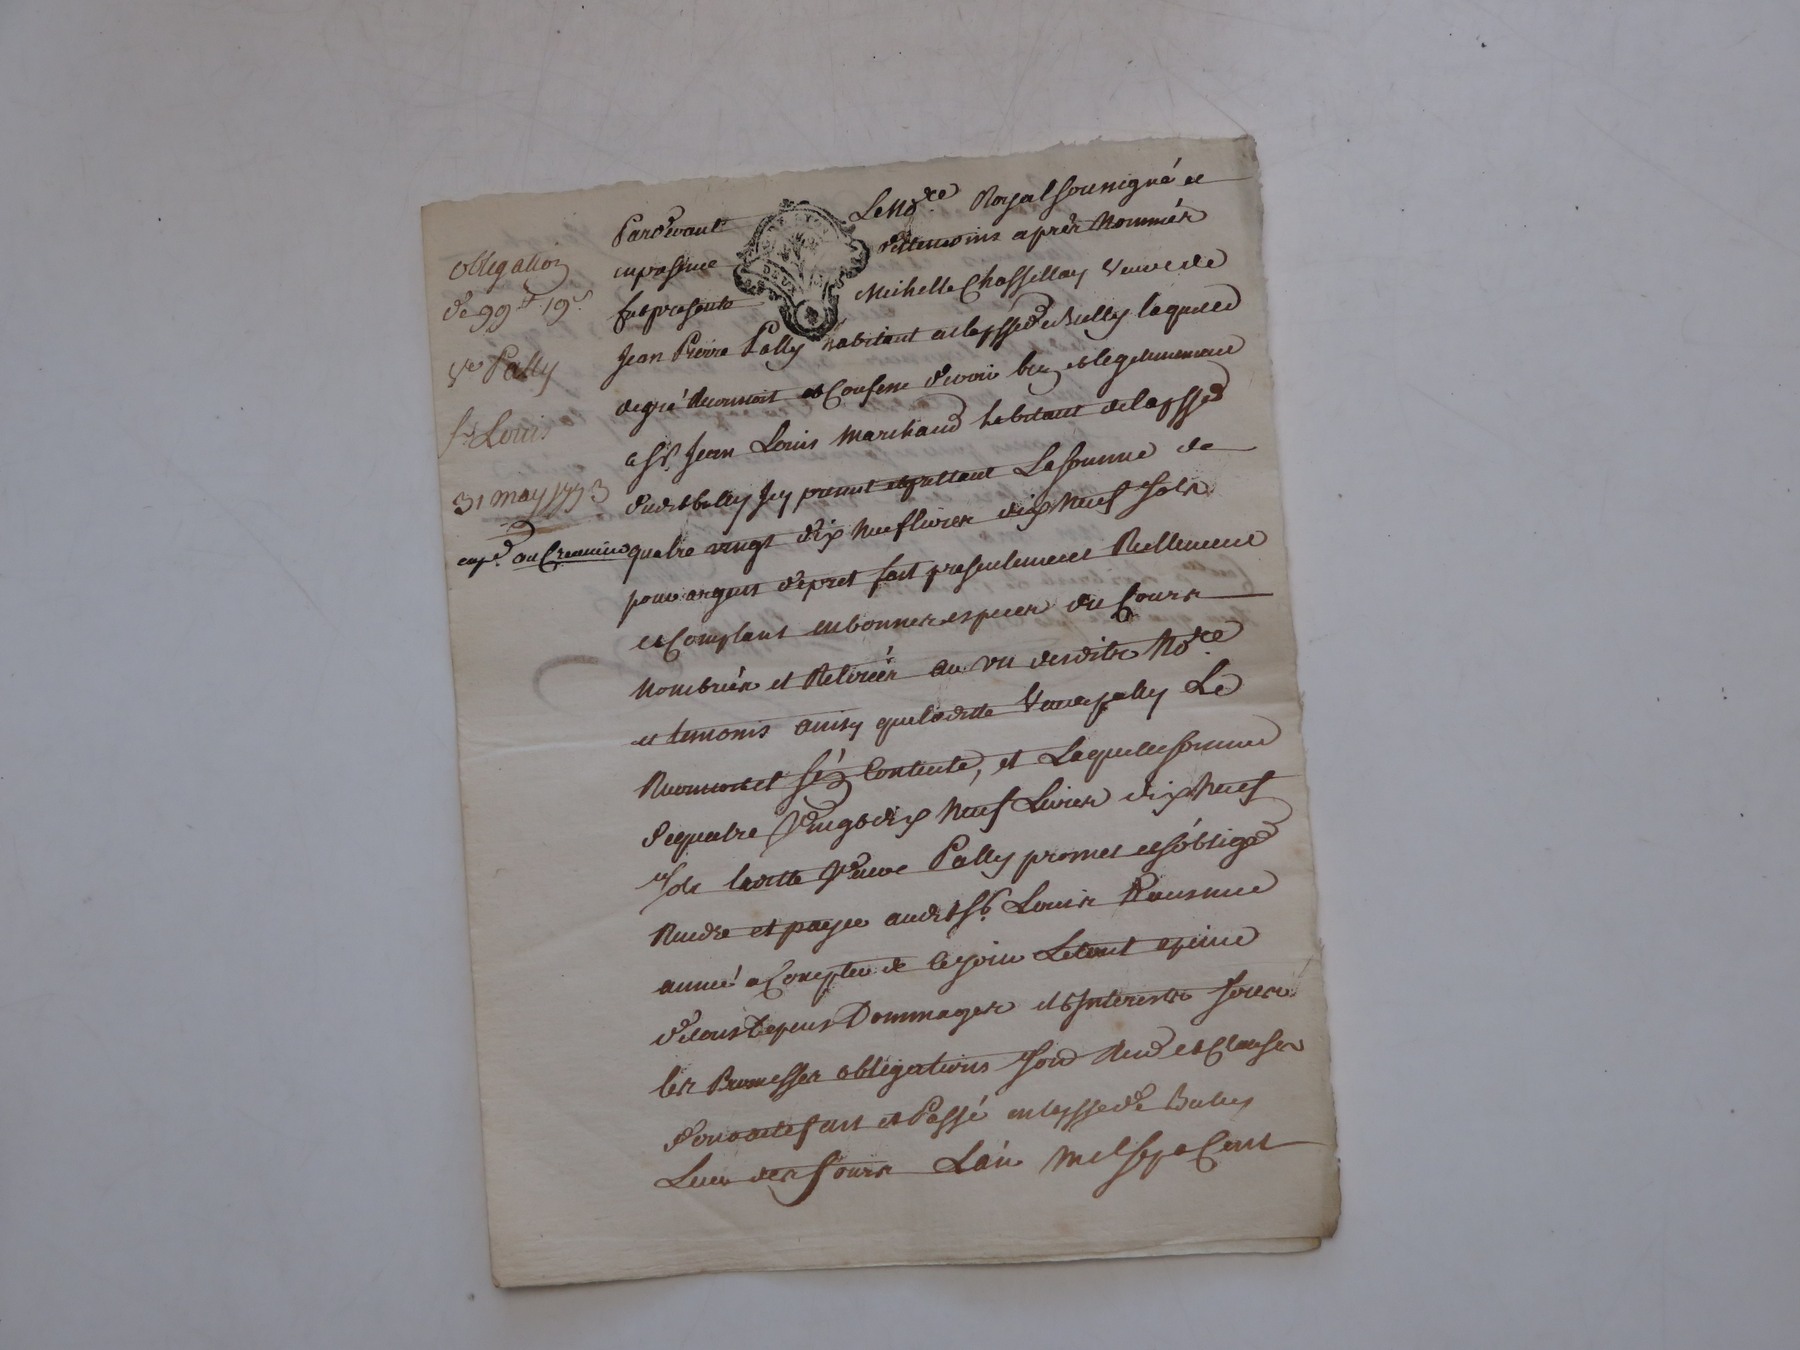 obligation
de 99# 19s
Ve Pally
sr Louis
31 may 1773
expd. au Creancier
Pardevant Le No.re Royal sousigné et
en presence des temoins apres Nommés
fut presente Michelle Chassillay Veuve de
Jean Pierre Pally habitant de la psse de Bully laquelle
de gré reconnoit et Confesse devoir bien et legitimement
a Sr. Jean Louis Marchand habitant de la psse
dudit bully Icy present acceptant La somme de
quatre vingt dix Neuf livres dix Neuf sols
pour argent de pret fait presentement Reellement
et Comptant en bonnes especes du Cours
Nombrées et Retirées au vu desdits No.re
et temoins ainsy que laditte Veuve pally Le
Reconnoit s'en Contente, et Laquelle somme
de quatre Vingt dix Neuf Livres dix Neuf
sols laditte Veuve Pally promet et s'oblige
Rendre et payer audit Sr. Louis
année a Compter de ce jour Le tout a peine
de tous depens Dommages et Interests sous
les Promesses obligations et Clauses
dont acte fait et Passé en la psse de Bully
Lieu des fours L'an Mil sept Cent